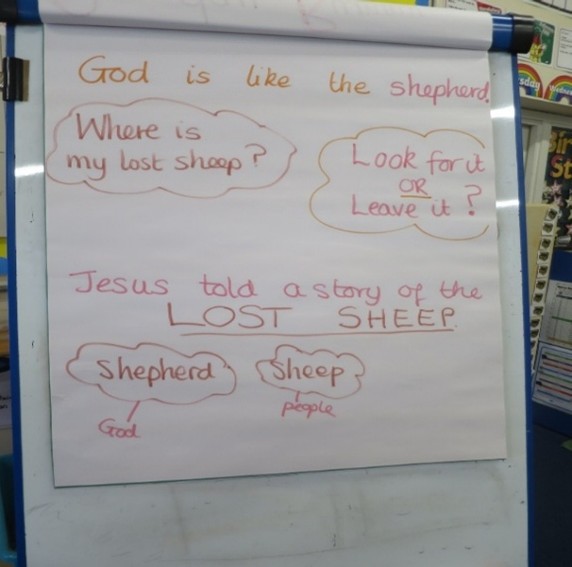 God is like the shepherd.
Where is
my lost sheep?
Look for it
OR
Leave it?
Jesus told a story of the
LOST SHEEP.
Shepherd
Sheep
God
people
sday